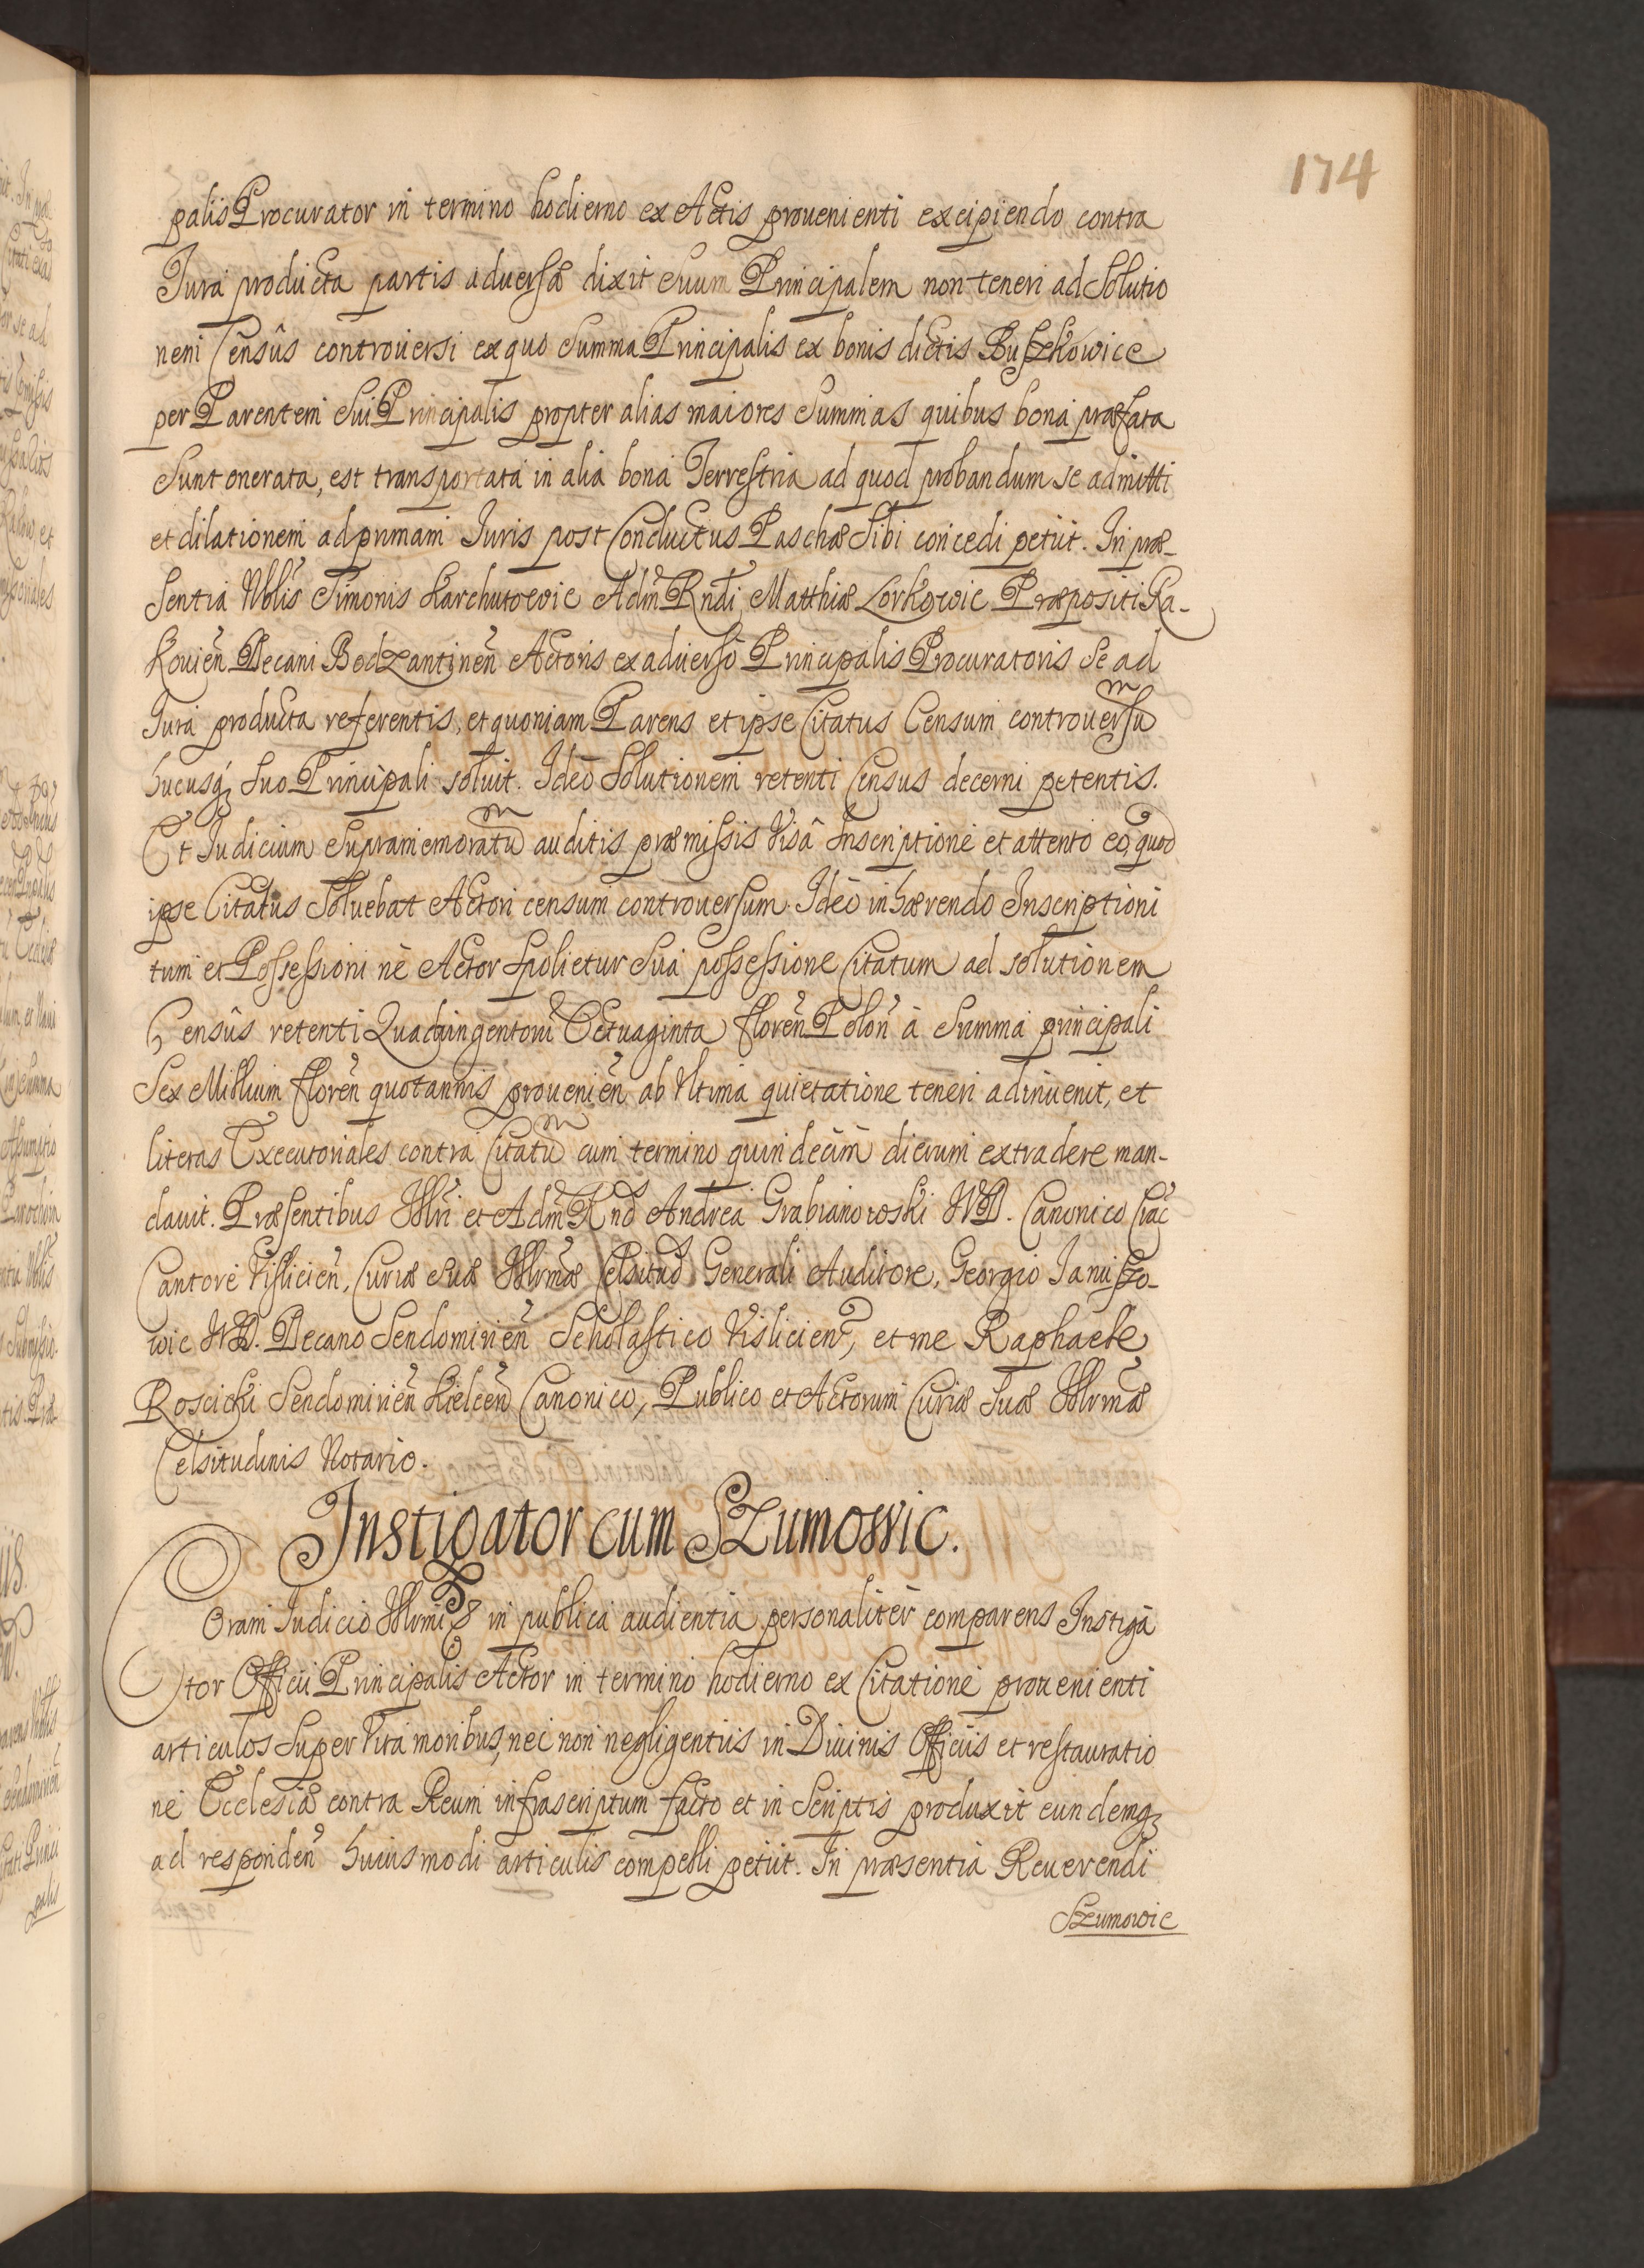 174
palis Procurator in termino hodierno ex Actis prouenienti excipiendo contra
Jura producta partis aduersæ dixit Suum Principalem non teneri ad Solutio
nem Censûs controuersi ex quo Summa Principalis ex bonis dictis Buszkowice
per Parentem Sui Principalis propter alias maiores Summas quibus bona præfata
Sunt onerata, est transportata in alia bona Terrestria ad quod probandum se admitti
et dilationem ad primam Juris post Conductus Paschæ Sibi concedi petiit. In præ-
Sentia Nblis Simonis Karchutowic Adm̃ Rndi Matthiæ Lorkowic Præpositi Ra-
kouien̄ Decani Bodzantinen̄ Actoris ex aduerso Principalis Procuratoris Se ad
Jura producta referentis, et quoniam Parens et ipse Citatus Censum controuersũ
hucusq; Suo Principali soluit. Ideò Solutionem retenti Census decerni petentis.
Et Judicium Supramemoratũ auditis præmissis Visâ Inscriptione et attento eo, quod
ipse Citatus Soluebat Actori censum controuersum. Ideò inhærendo Inscriptioni
tum et Possessioni nè Actor Spolietur Sua possessione Citatum ad solutionem
Censûs retenti Quadringentorũ Octuaginta floren̄ Polon̄ à Summa principali
Sex Millium floren̄ quotannis prouenien̄ ab Vltima quietatione teneri adinuenit, et
literas Executoriales contra Citatũ cum termino quindecim dierum extradere man-
dauit. Præsentibus Illri et Adm̃ Rnd Andrea Grabianowski IVD. Canonico Crac̄
Cantore Vislicien̄, Curiæ Suæ Illrmæ Celsitud Generali Auditore, Georgio Janiszo-
wic IVD. Decano Sendomirien̄ Scholastico Vislicien̄, et me Raphaele
Roscicki Sendomirien̄ Kielcen̄ Canonico, Publico et Actorum Curiæ Suæ Illrmæ
Celsitudinis Notario.
Instigator cum Szumowic.
Coram Judicio Illrmi & in publica audientia personalitèr comparens Instiga
tor Officii Principalis Actor in termino hodierno ex Citatione prouenienti
articulos Super Vita moribus, nec non negligentiis in Diuinis Officiis et restauratio
ne Ecclesiæ contra Reum infrascriptum facto et in Scriptis produxit eundemq;
ad responden̄ huiusmodi articulis compelli petiit. In præsentia Reuerendi
Szumowic